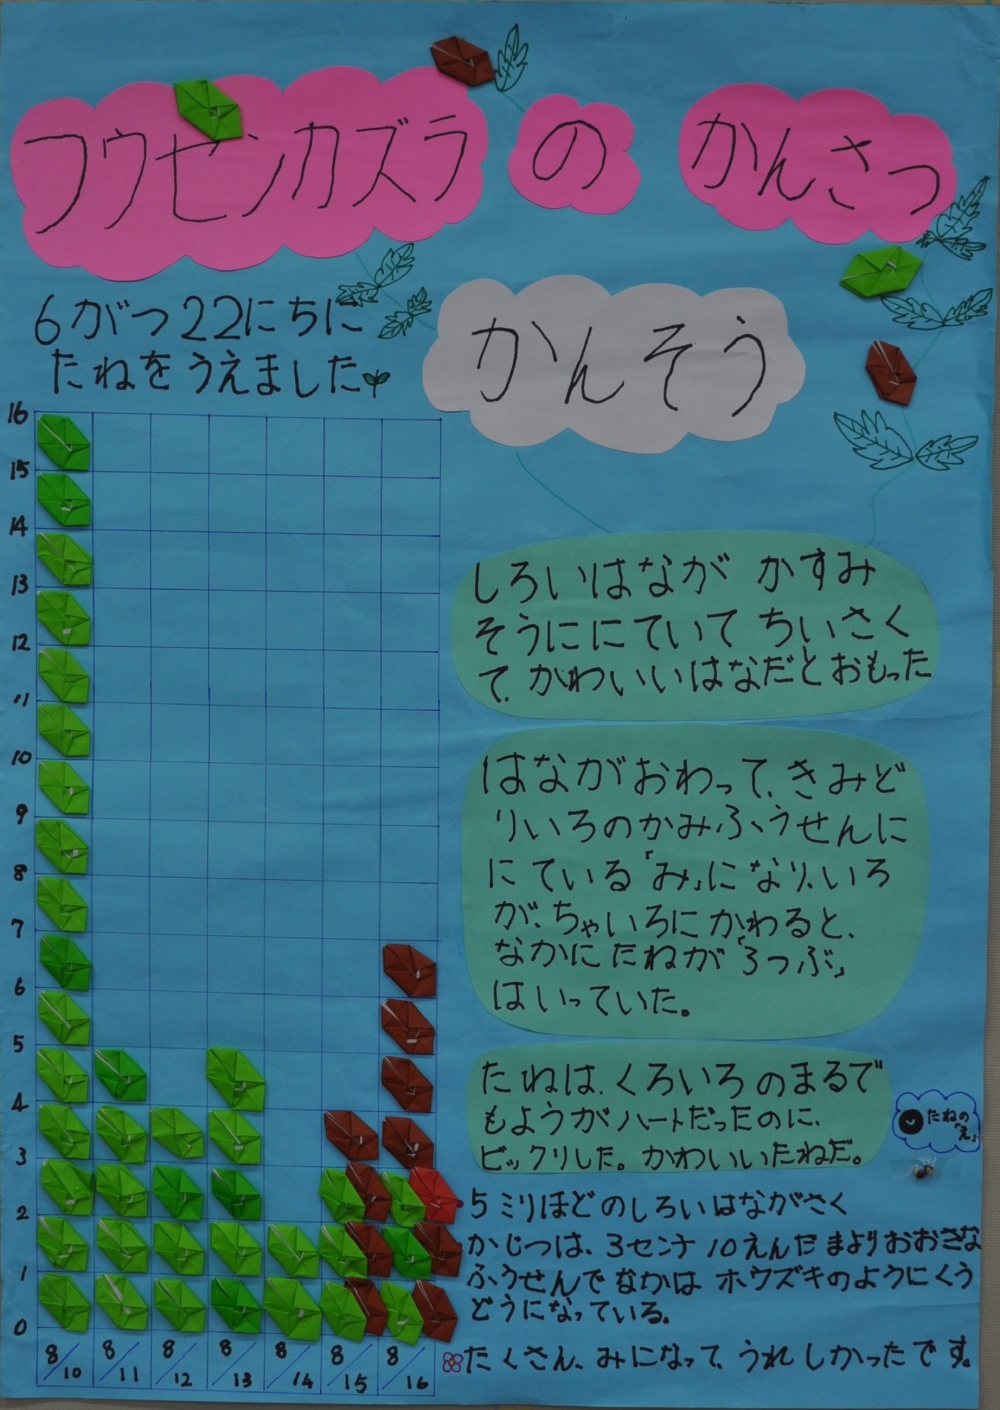 フウセンカズラ の かんさつ
6がつ22にちに
たねをうえました
かんそう
16
15
14
13
12
11
10
9
8
7
6
5
4
3
2
1
0
8/10 8/11 8/12 8/13 8/14 8/15 8/16
しろいはなが かすみ
そうににていて ちいさく
て、かわいいはなだとおもった
はながおわって、きみど
りいろのかみふうせんに
にている「み」になり、いろ
が、ちゃいろにかわると、
なかにたねが「3つぶ」
はいっていた。
たねは、くろいろのまるで
もようがハートだったのに、
ビックリした。かわいいたねだ。
たねの
え
5ミリほどのしろいはながさく
かじつは、3センチ10えんだまよりおおきな
ふうせんでなかはホウズキのようにくう
どうになっている。
たくさん、みになって、うれしかったです。